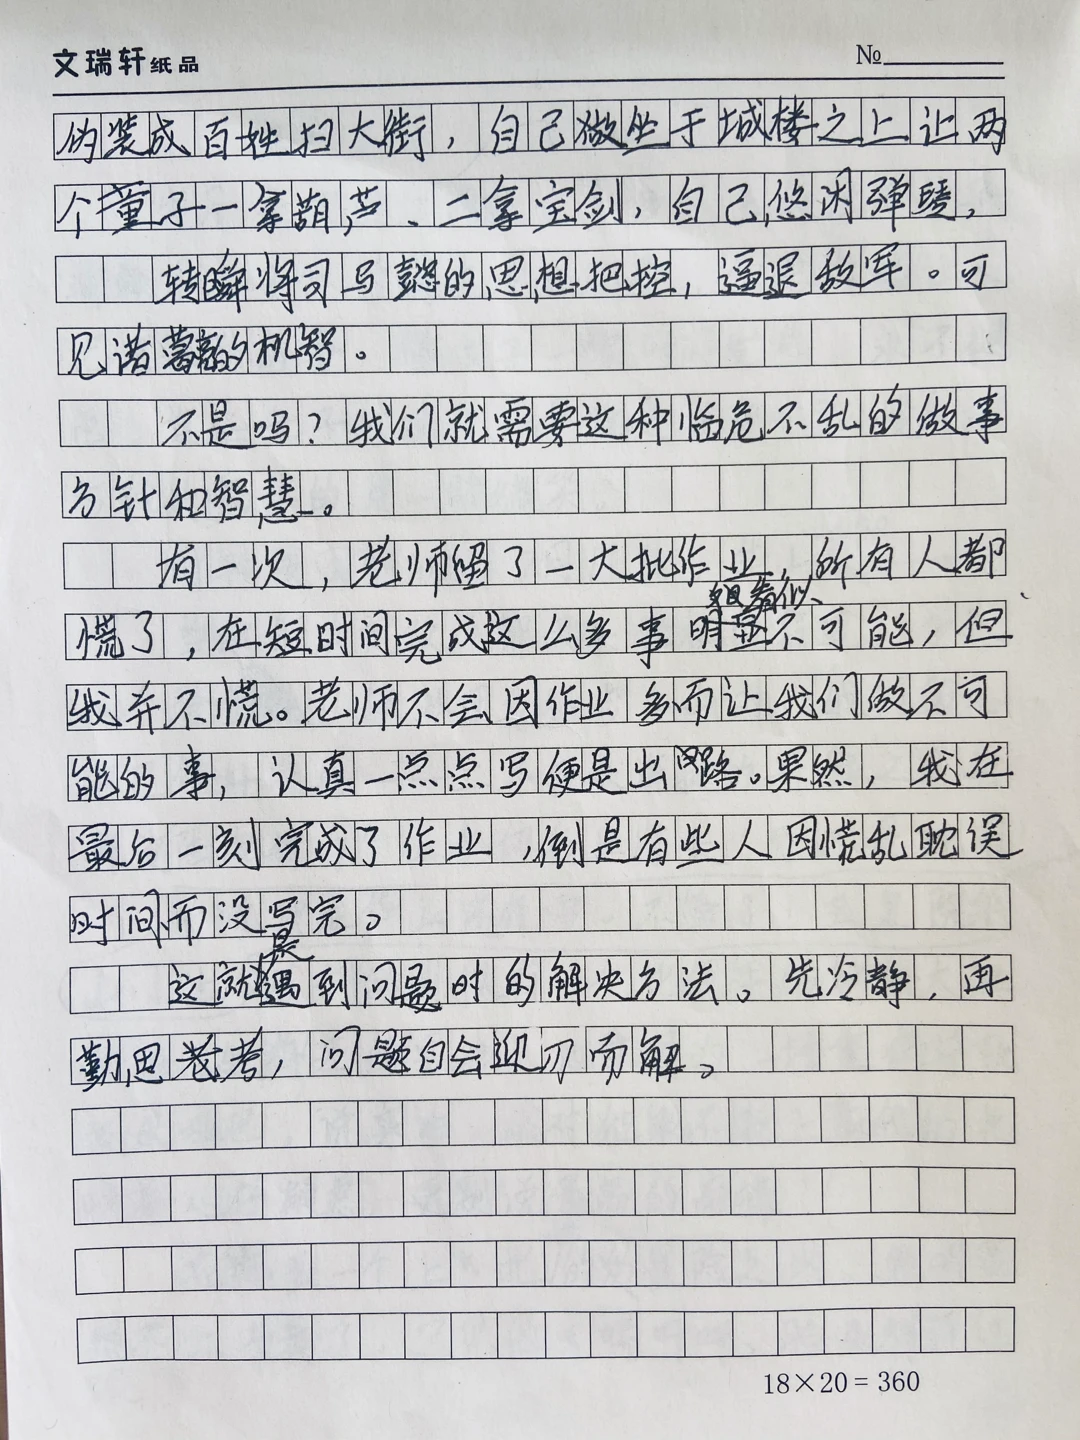 文瑞轩纸品 №
伪装成百姓扫大街，自己做坐于城楼之上让两
个童子一拿葫芦、二拿宝剑，自己悠闲弹琴，
转瞬将司马懿的思想把控，逼退敌军。可
见诸葛亮的机智。
不是吗？我们就需要这种临危不乱的做事
方针和智慧。
有一次，老师留了一大批作业，所有人都
看似
慌了，在短时间完成这么多事明显不可能，但
我并不慌。老师不会因作业多而让我们做不可
能的事，认真一点点写便是出路。果然，我在
最后一刻完成了作业，倒是有些人因慌乱耽误
时间而没写完。
是
这就遇到问题时的解决方法。先冷静，再
勤思考，问题自会迎刃而解。
18×20=360